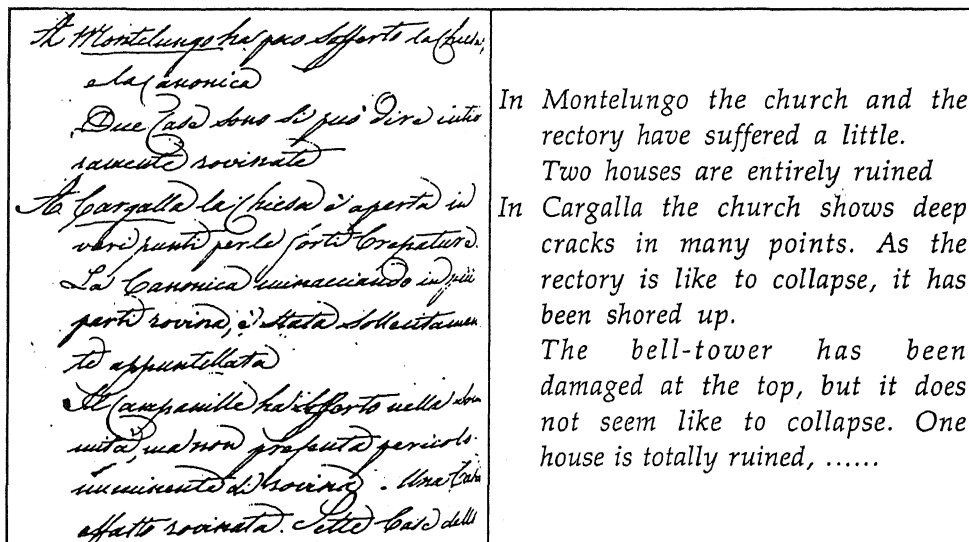 A Montelungo ha poco sofferto la Chiesa,
e la Canonica
Due Case sono si può dire intie
ramente rovinate
A Cargalla la Chiesa è aperta in
vari punti per le forti Crepature.
La Canonica minacciando in più
parti rovina, è stata sollecitamen
te appuntellata
Il Campanille ha sofferto nella som
mità, ma non presenta pericolo
imminente di rovina. Una Casa
affatto rovinata. Sette Case delle
In Montelungo the church and the
rectory have suffered a little.
Two houses are entirely ruined
In Cargalla the church shows deep
cracks in many points. As the
rectory is like to collapse, it has
been shored up.
The bell-tower has been
damaged at the top, but it does
not seem like to collapse. One
house is totally ruined, ......